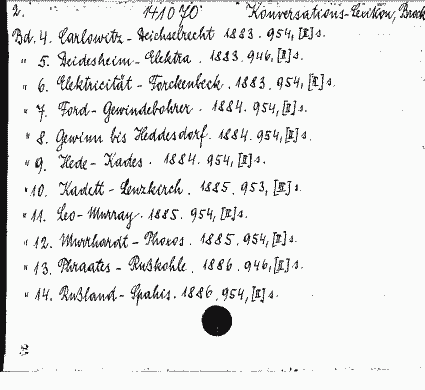 2. 141070 Konversations-Lexikon, Brock
Bd. 4. Carlowitz - Deichselrecht 1883. 954, [II] s.
" 5. Deidesheim - Elektra. 1883. 946, [II] s.
" 6. Elektricität - Forckenbeck. 1883. 954, [II] s.
" 7. Ford - Gewindebohrer. 1884. 954, [II] s.
" 8. Gewinn bis Heddesdorf. 1884. 954, [II] s.
" 9. Hede - Kades. 1884. 954, [II] s.
" 10. Kadett - Lenzkirch. 1885. 953, [II] s.
" 11. Leo - Murray. 1885. 954, [II] s.
" 12. Murrhardt - Phoxos. 1885. 954, [II] s.
" 13. Phraates - Rußkohle. 1886. 946, [II] s.
" 14. Rußland - Spahis. 1886. 954, [II] s.